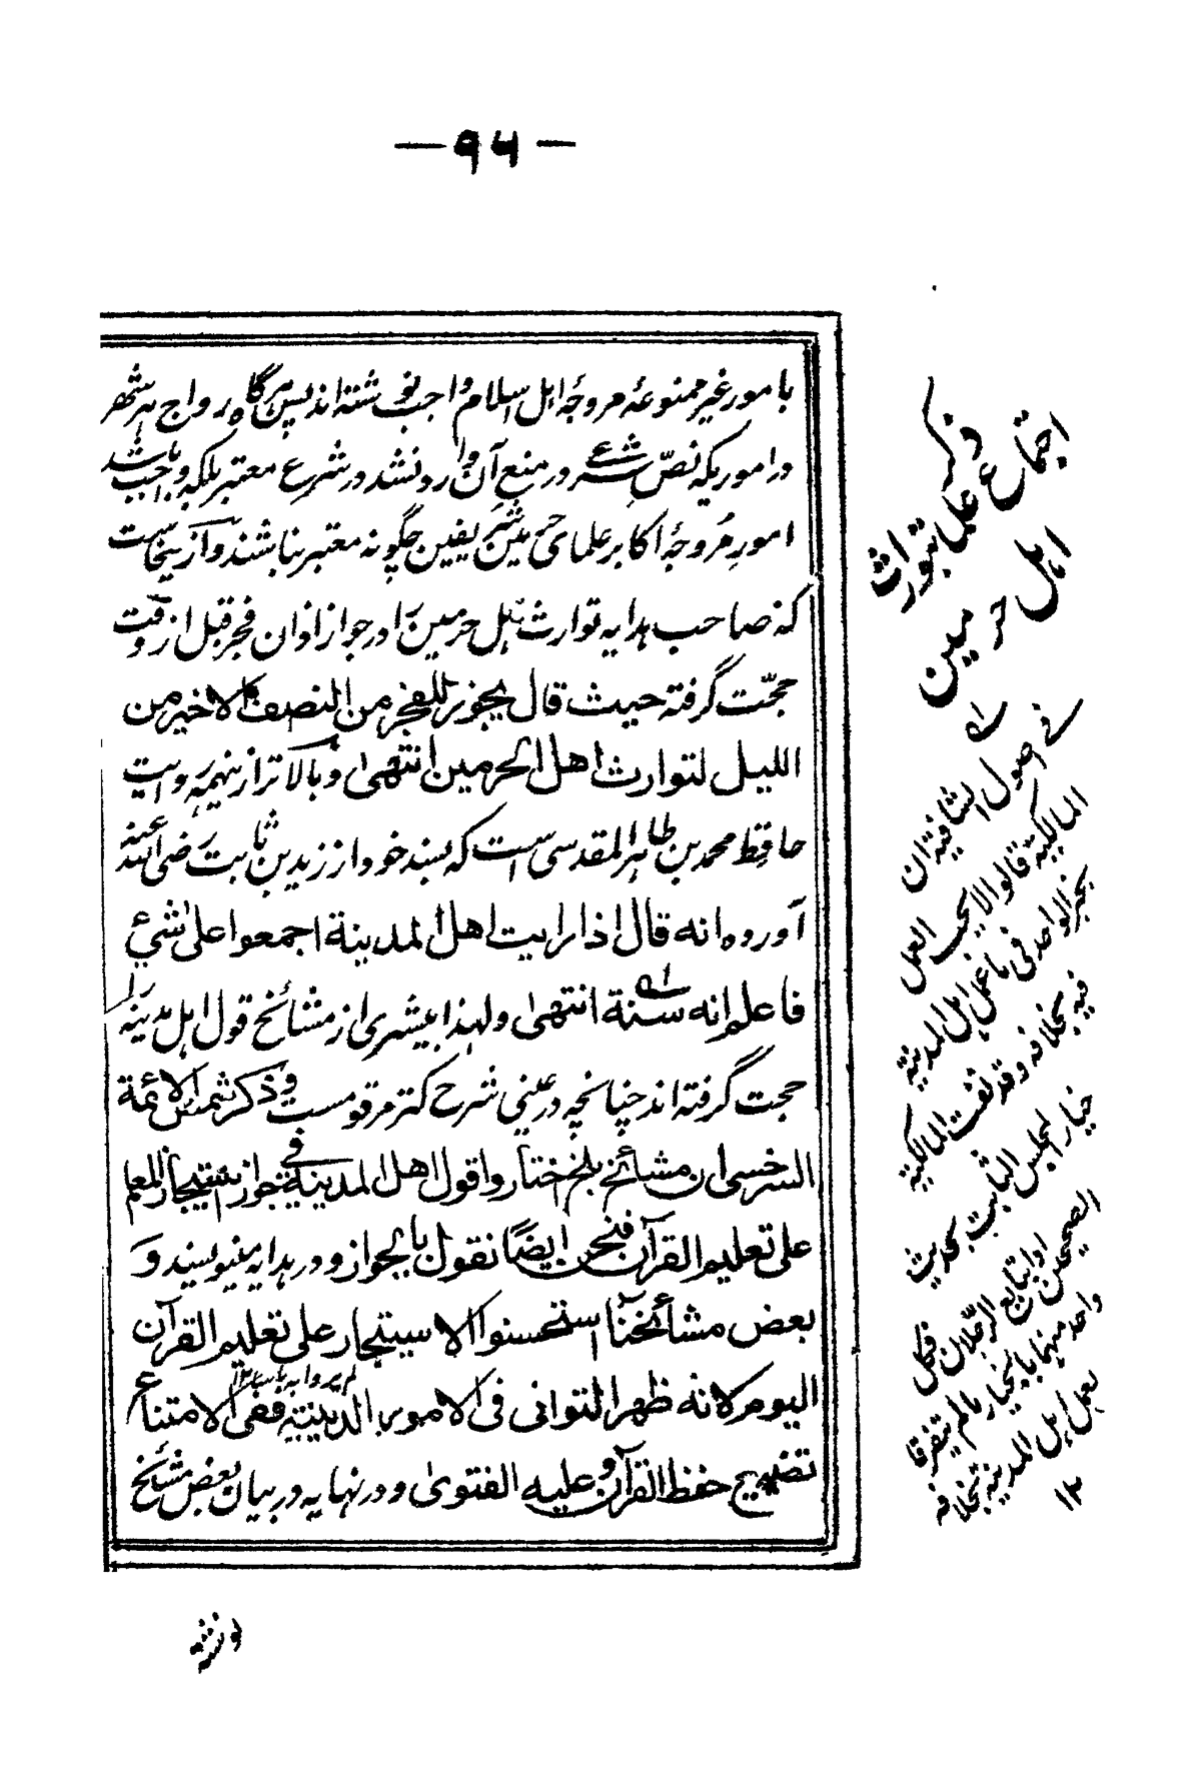 —۹۴—
بامور غیر ممنوعۂ مروجۂ اہل اسلام واجب نوشتہ اند پس ہرگاہ رواج ہر شہر
در اموریکہ نصّ شرعے در منع آن وارد نشد در شرع معتبر بلکہ واجب باشد
امورِ مُروجۂ اکابر علمای حرمین شریفین چگونہ معتبر نباشند و ازینجاست
کہ صاحب ہدایہ توارث اہل حرمین را در جواز اذان فجر قبل از وقت
حجّت گرفتہ حیث قال یجوز للفجر من النصف الاخیر من
اللیل لتوارث اهل الحرمین انتهیٰ و بالاتر ازینہمہ روایت
حافظ محمد بن طاہر المقدسی است کہ بسند خود از زید بن ثابت رضی اللہ عنہ
آوردہ انه قال اذا رایت اهل المدینة اجمعوا علیٰ شیٔ
فاعلم انه سنة انتهیٰ ولہذا بیشتری از مشائخ قول اہل مدینہ را
حجت گرفتہ اند چنانچہ در عینی شرح کنز مرقومست وذکر شمس الائمة
السرخسی ان مشائخ بلخ اختاروا قول اهل المدینة فی جواز استیجار المعلم
علی تعلیم القرآن فنحن ایضًا نقول بالجواز و در ہدایہ مینویسند وَ
بعض مشائخنا استحسنوا الاستیجار علی تعلیم القرآن
الیوم لانه ظهر التوانی فی الامور الدینیة ففی الامتناع
تضییع حفظ القرآن و علیه الفتویٰ و در نہایہ در بیان بعض مشائخ
ذکر
اجماع علما بتوارث
اہل حرمین
لہ
فی اصول الشافیة ان
المالکیة قالوا لا یجب العمل
بخبر الواحد فی ما عمل اہل المدینة
فیہ بخلافہ وقد نفت المالکیة
خیار المجلس الثابت بحدیث
الصحیحین اذا تبایع الرجلان فکل
واحد منہما بالخیار مالم یتفرقا
بعمل اہل المدینة بخلافہ
۱۲